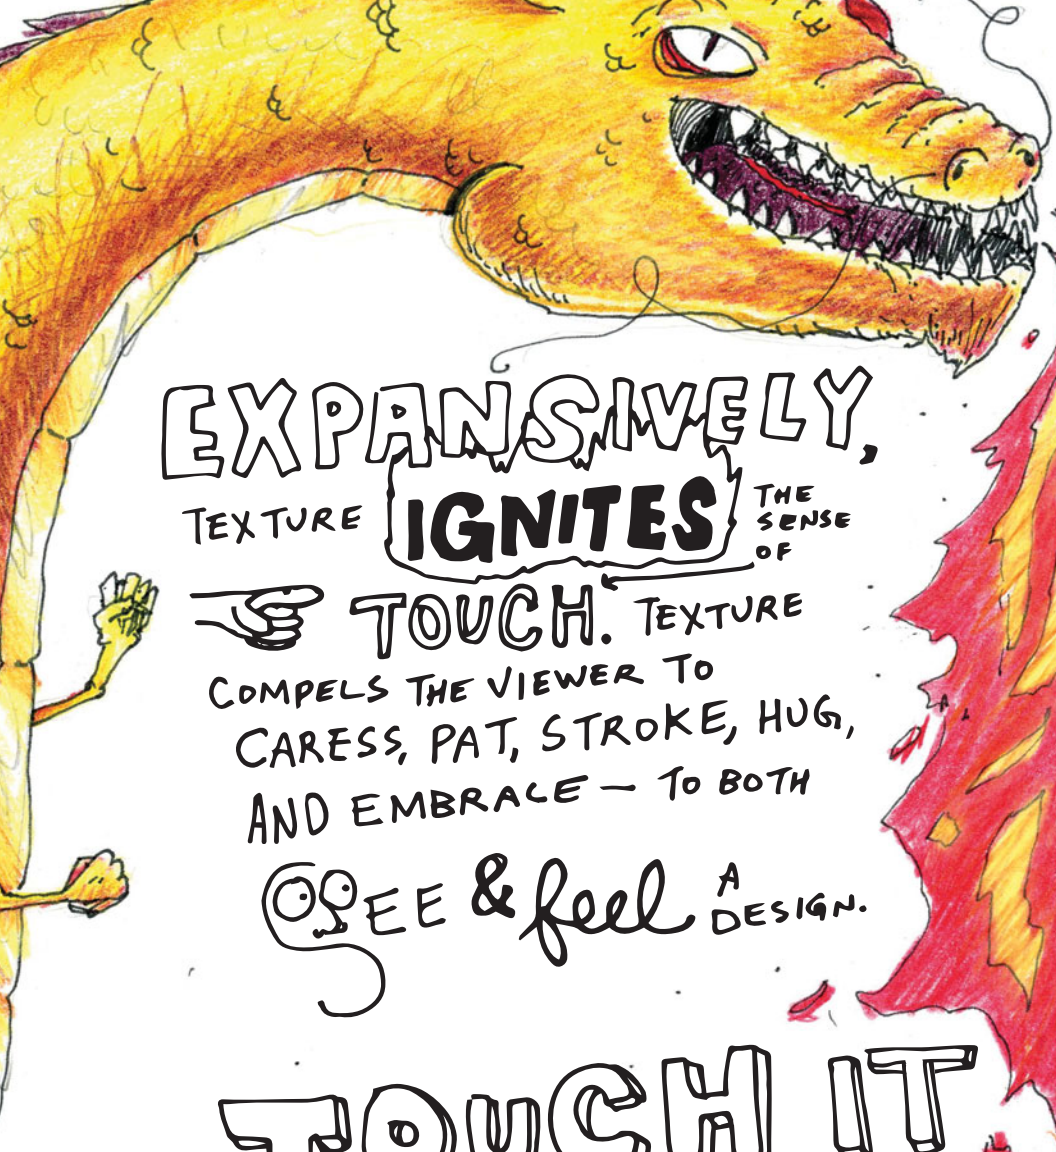 EXPANSIVELY,
TEXTURE IGNITES THE SENSE OF
TOUCH. TEXTURE
COMPELS THE VIEWER TO
CARESS, PAT, STROKE, HUG,
AND EMBRACE — TO BOTH
SEE & feel A DESIGN.
TOUCH IT